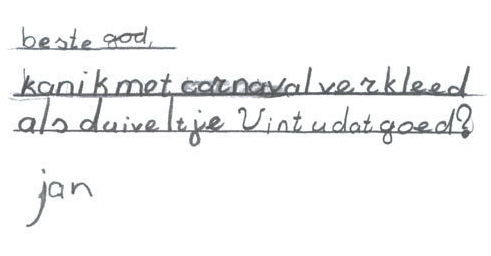 beste god,
kan ik met carnaval verkleed
als duiveltje Vint u dat goed?
jan